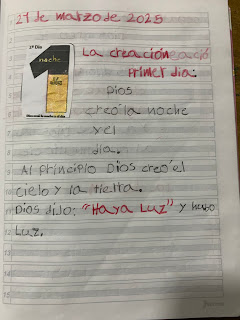 27 de marzo de 2025
1º Día
noche
La creación
Primer día:
Dios
creó la noche
y el
día.
Al principio Dios creó el
cielo y la tierra.
Dios dijo: "Haya Luz" y hubo
Luz.